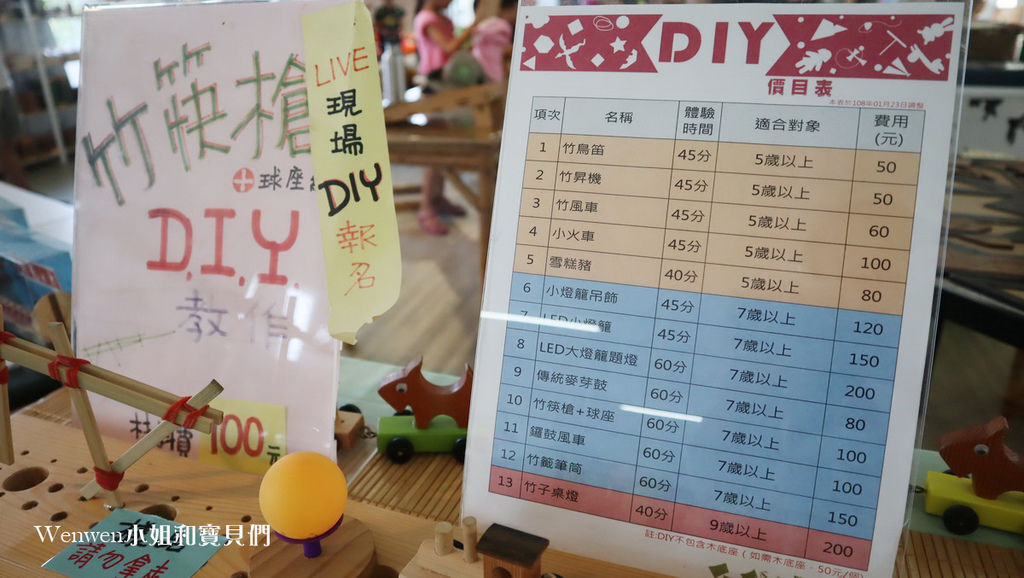 竹筷槍
球座
D.I.Y.
教作
100元
LIVE
現場
DIY
報名
DIY
價目表
本表於108年01月23日調整
項次 名稱 體驗時間 適合對象 費用(元)
1 竹鳥笛 45分 5歲以上 50
2 竹昇機 45分 5歲以上 50
3 竹風車 45分 5歲以上 60
4 小火車 45分 5歲以上 100
5 雪糕豬 40分 5歲以上 80
6 小燈籠吊飾 45分 7歲以上 120
7 LED小燈籠 45分 7歲以上 150
8 LED大燈籠題燈 60分 7歲以上 200
9 傳統麥芽鼓 60分 7歲以上 80
10 竹筷槍+球座 60分 7歲以上 100
11 鑼鼓風車 60分 7歲以上 100
12 竹籤筆筒 60分 7歲以上 150
13 竹子桌燈 40分 9歲以上 200
註:DIY不包含木底座（如需木底座，50元/個）
Wenwen小姐和寶貝們
請勿拿